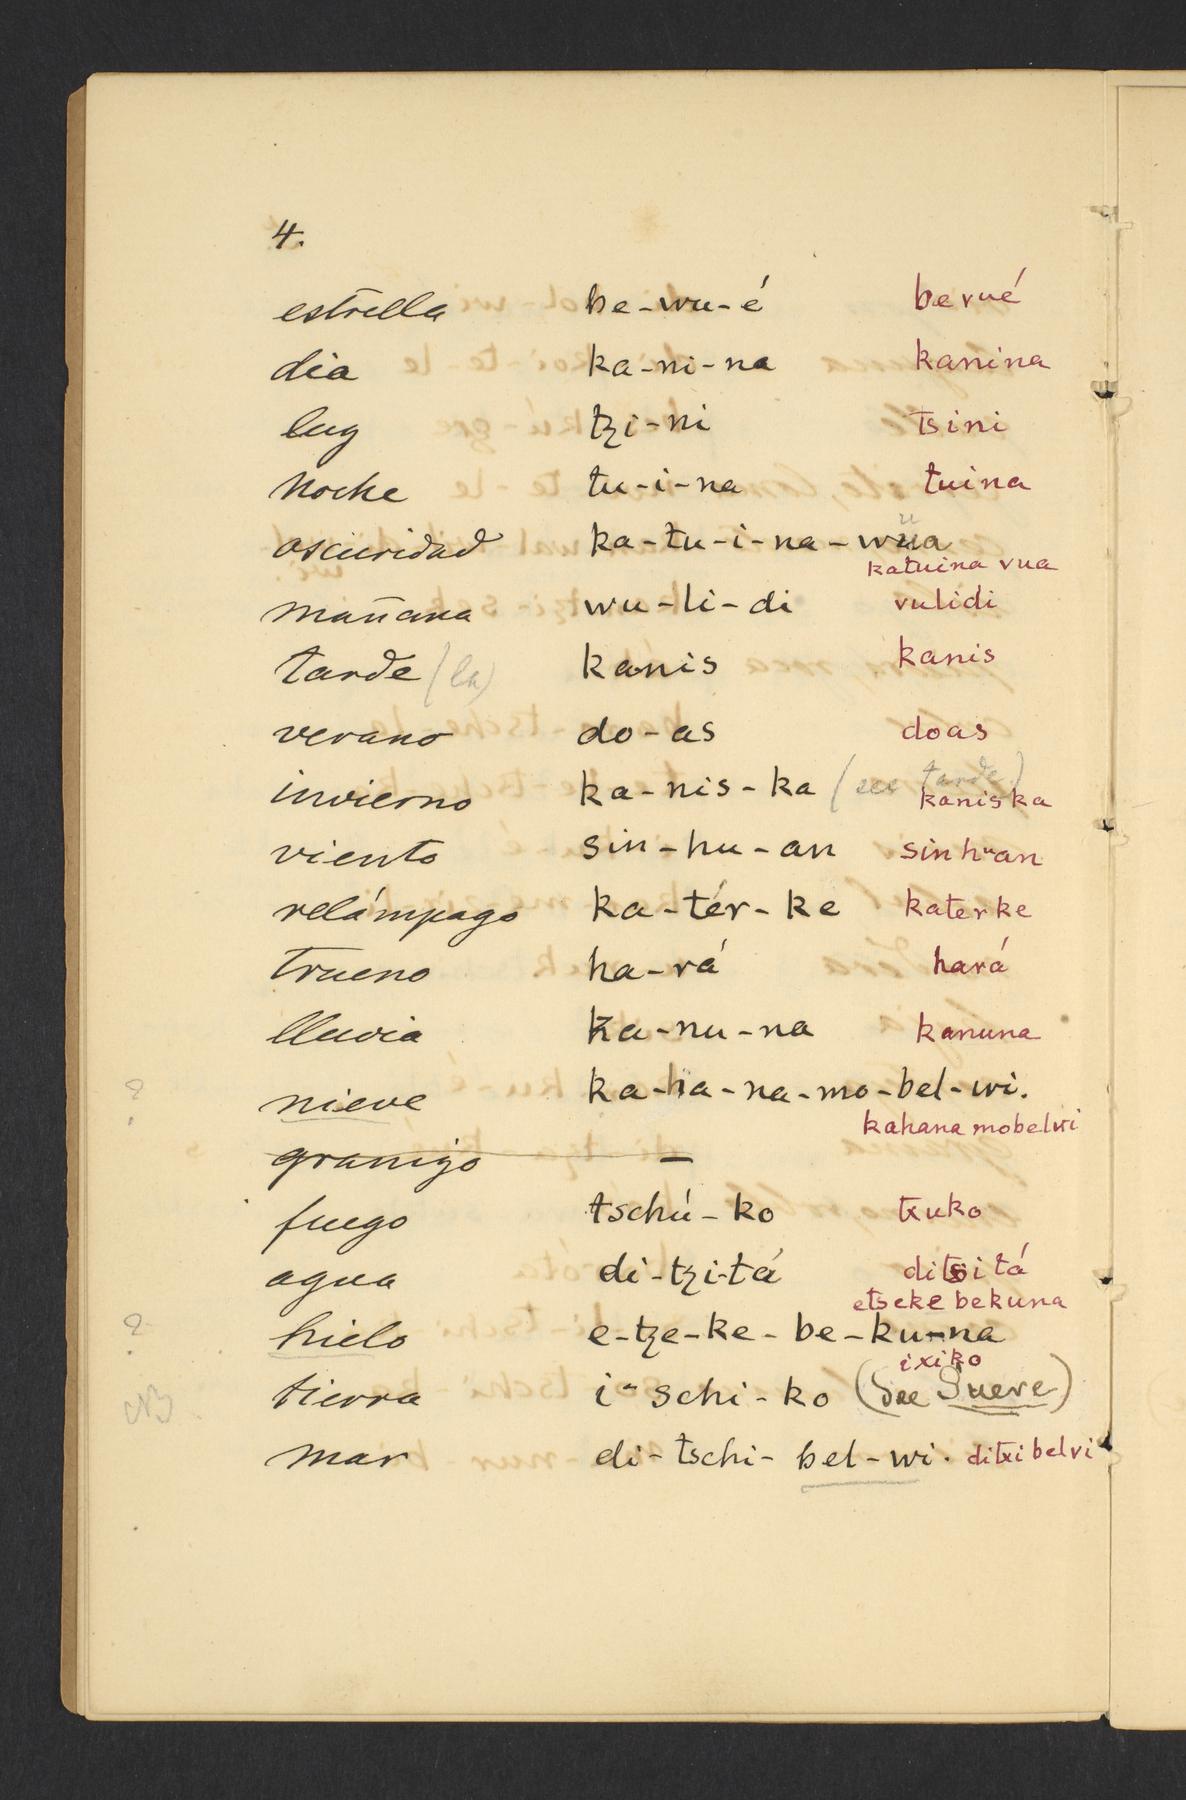 4.
estrella be-wu-é bevué
dia ka-ni-na kanina
luz tzi-ni tsini
noche tu-i-na tuina
oscuridad ka-tu-i-na-wüa
katuina vua
mañana wu-li-di vulidi
tarde (la) kanis kanis
verano do-as doas
invierno ka-nis-ka (see tarde)
kaniska
viento sin-hu-an sinhuan
relámpago ka-tér-ke katerke
trueno ha-rá hará
lluvia ka-nu-na kanuna
? nieve ka-ha-na-mo-bel-wi.
kahana mobelvi
granizo —
fuego tschú-ko txuko
agua di-tzi-tá ditsitá
etsekebekuna
? hielo e-tze-ke-be-ku-na
ixiko
NB tierra i-schi-ko (See Sueve)
mar di-tschi-bel-wi. ditxibelvi